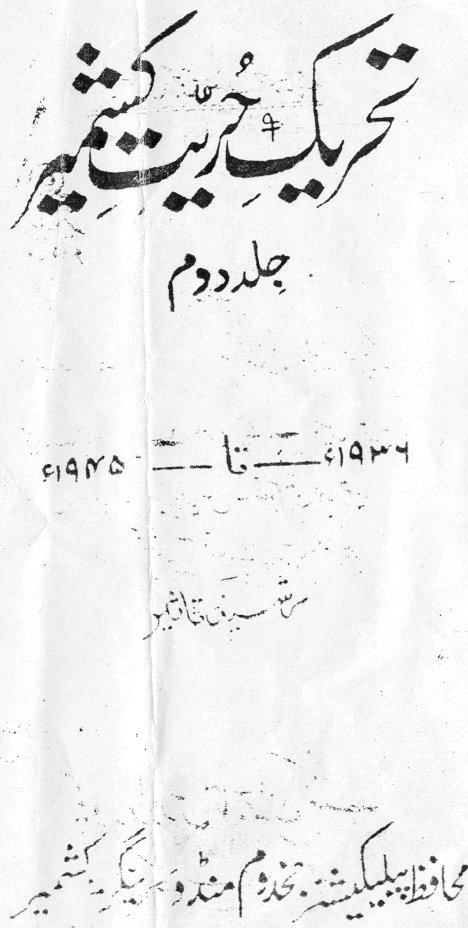 تحریکِ حُرّیتِ کشمیر
جِلد دوم
۱۹۳۶ء — تا — ۱۹۴۵ء
رشید تاثیر
محافظ پبلیکیشنز مخدوم منڈو سرینگر کشمیر